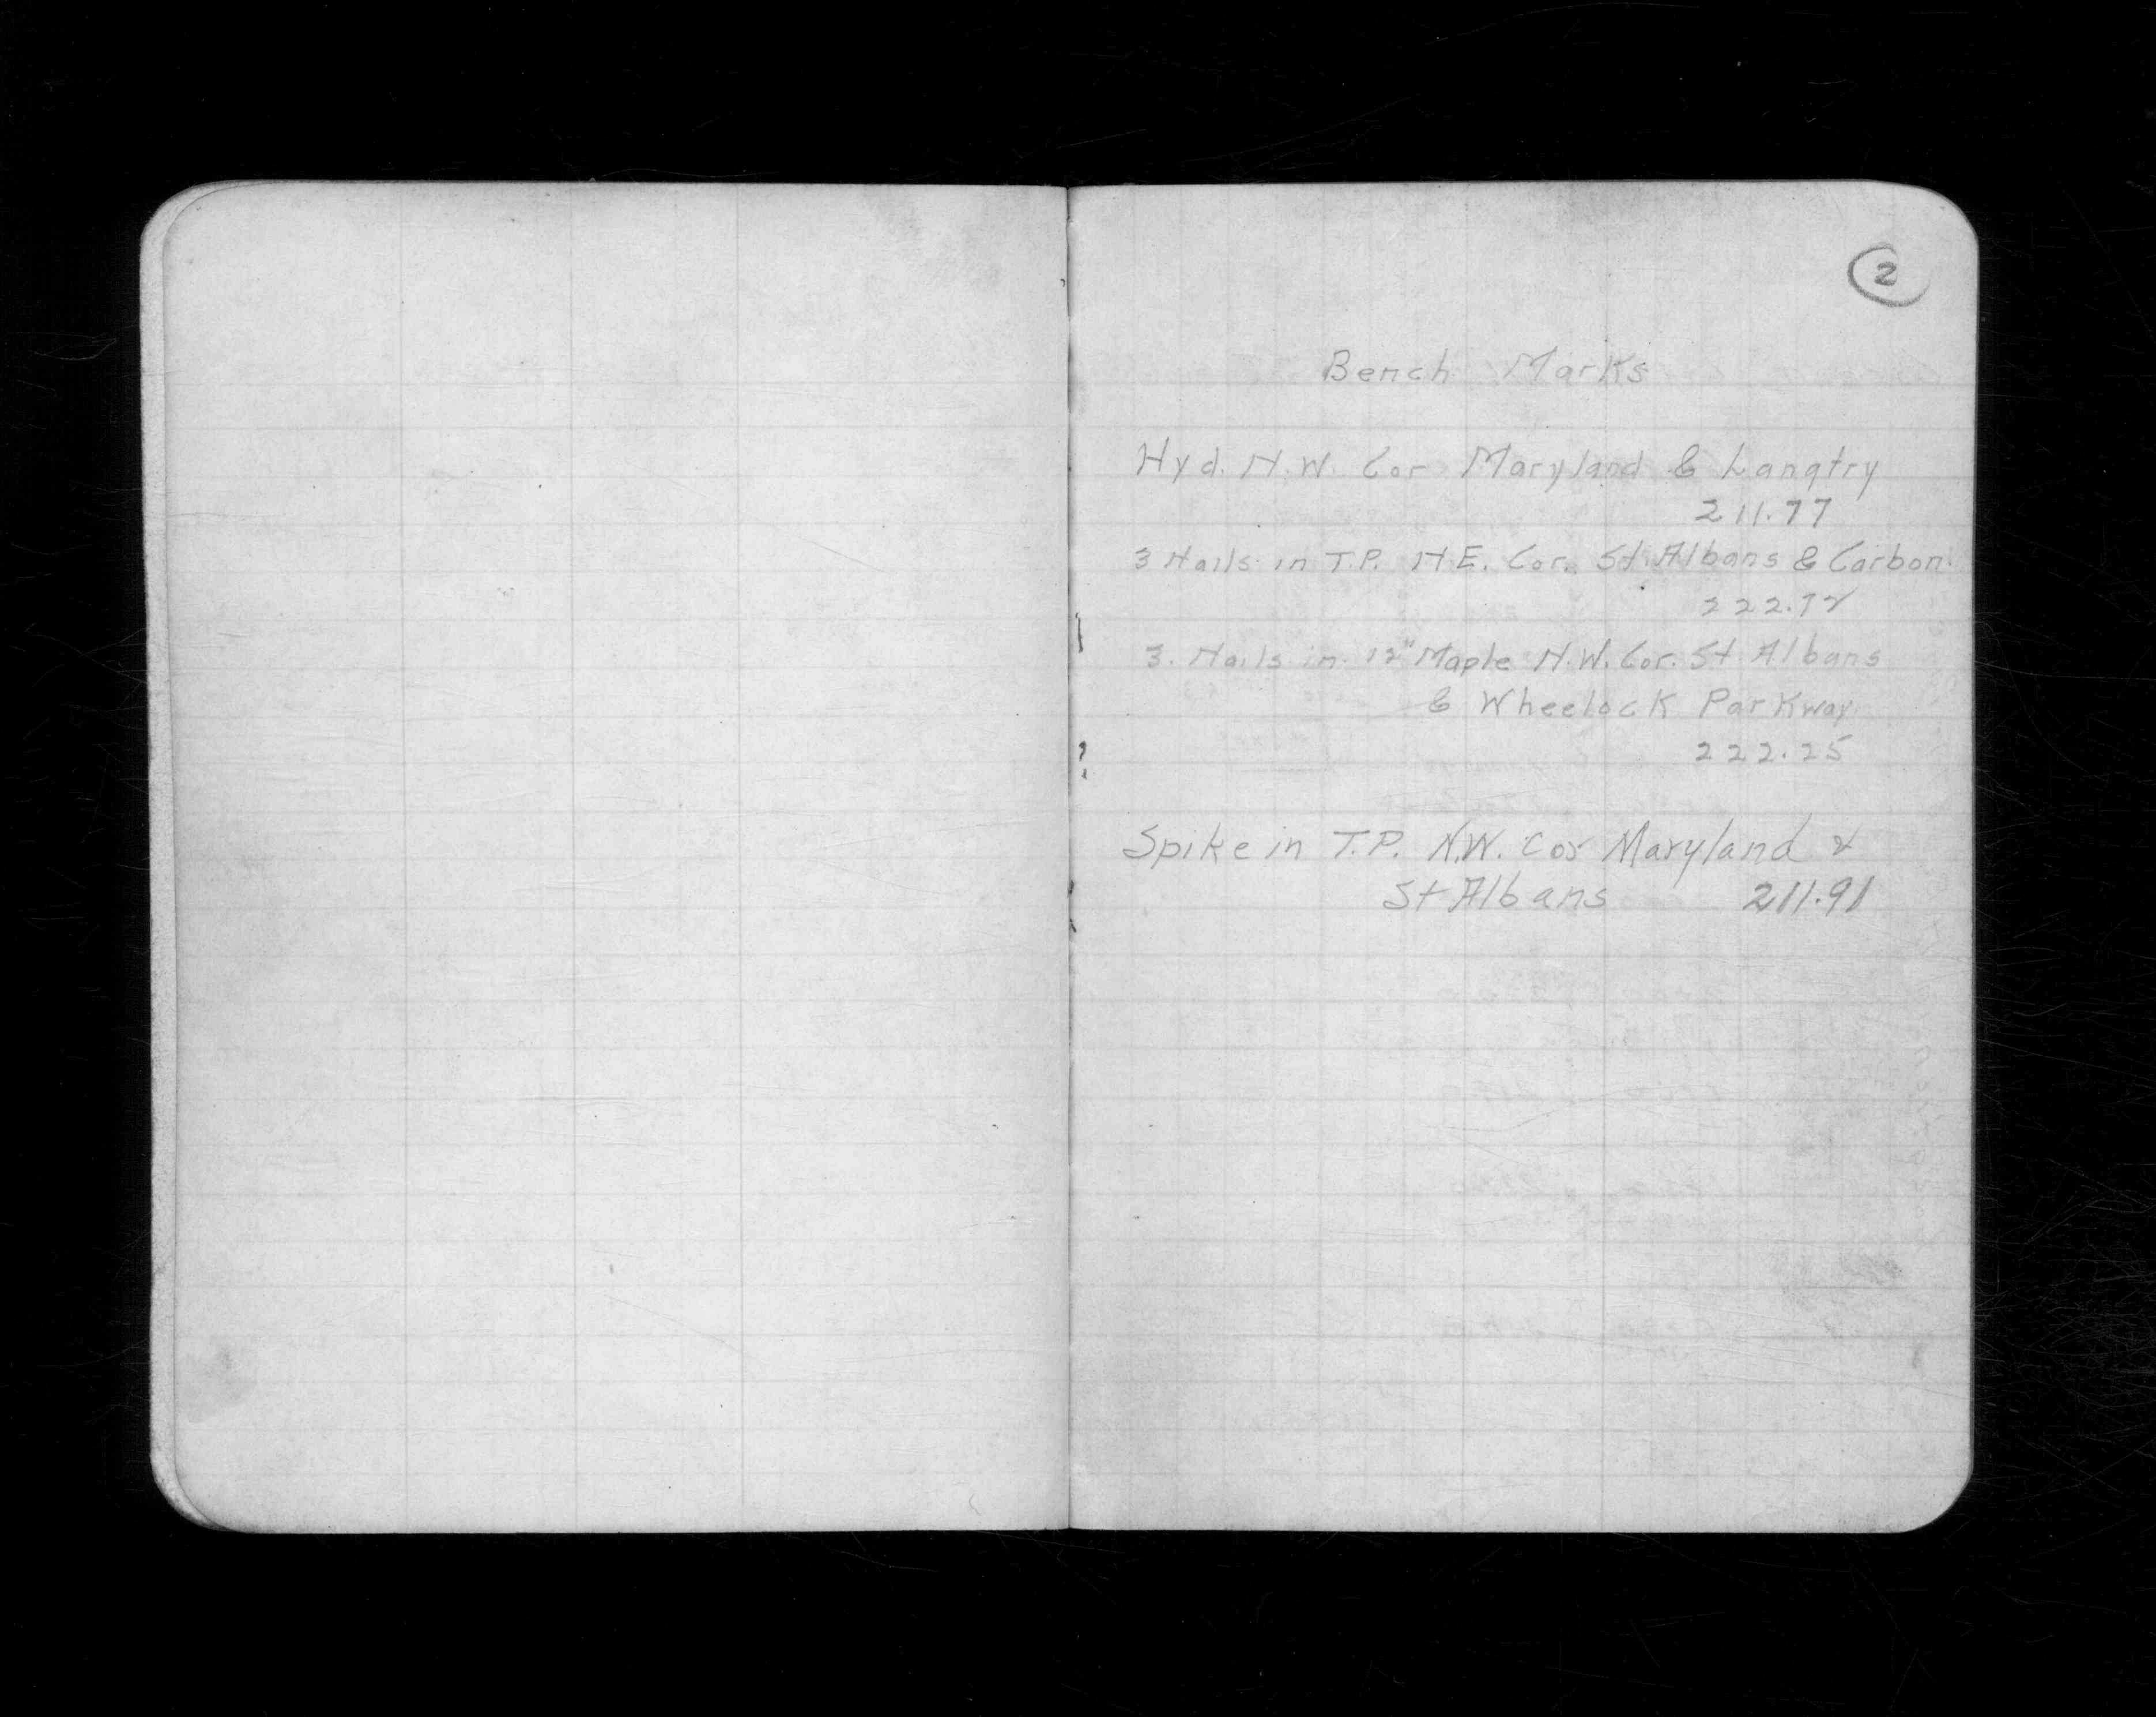 2
Bench Marks
Hyd. N.W. Cor Maryland & Langtry
211.77
3 Nails in T.P. N E. Cor. St. Albans & Carbon
222.72
3. Nails in 12" Maple N.W. Cor. St Albans
& Wheelock Parkway
222.25
Spike in T.P. N.W. Cor Maryland &
St Albans 211.91